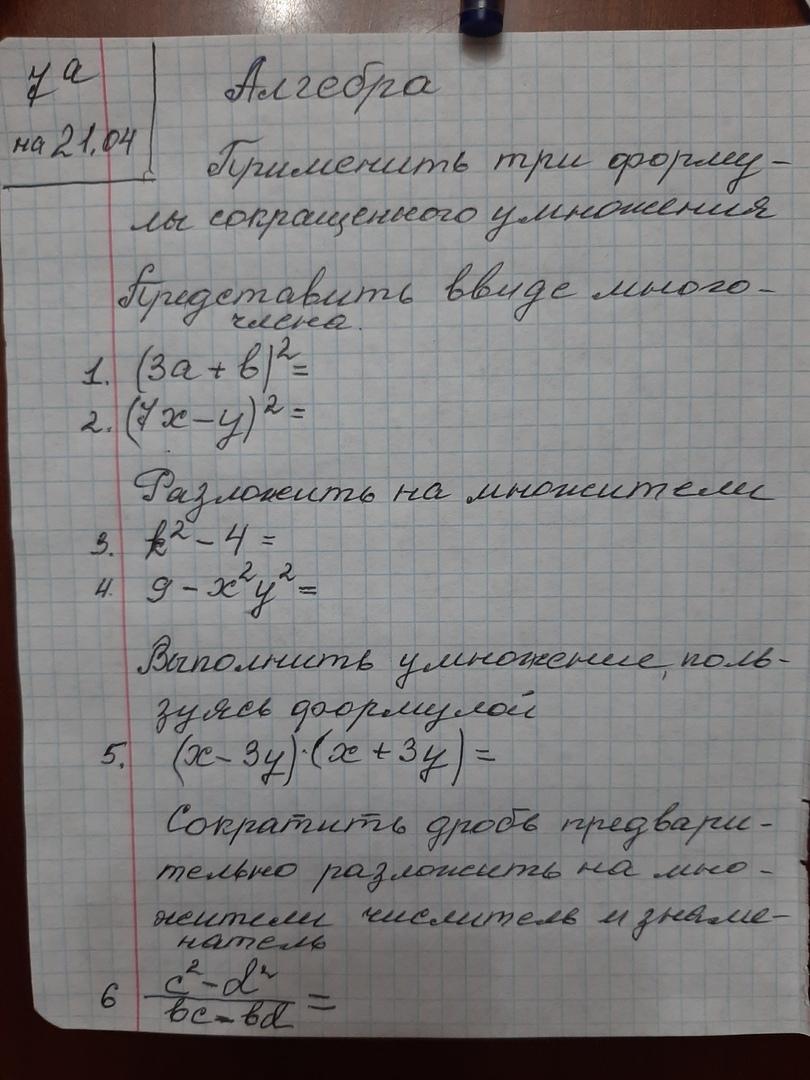 7ᵃ
на 21.04
Алгебра
Применить три форму-
лы сокращенного умножения
Представить ввиде много-
члена.
1. (3а + в)² =
2. (7х – у)² =
Разложить на множители
3. k² – 4 =
4. 9 – х²у² =
Выполнить умножение, поль-
зуясь формулой
5. (х – 3у)·(х + 3у) =
Сократить дробь предвари-
тельно разложить на мно-
жители числитель и знаме-
натель
6 c² – d²
вс – вd =